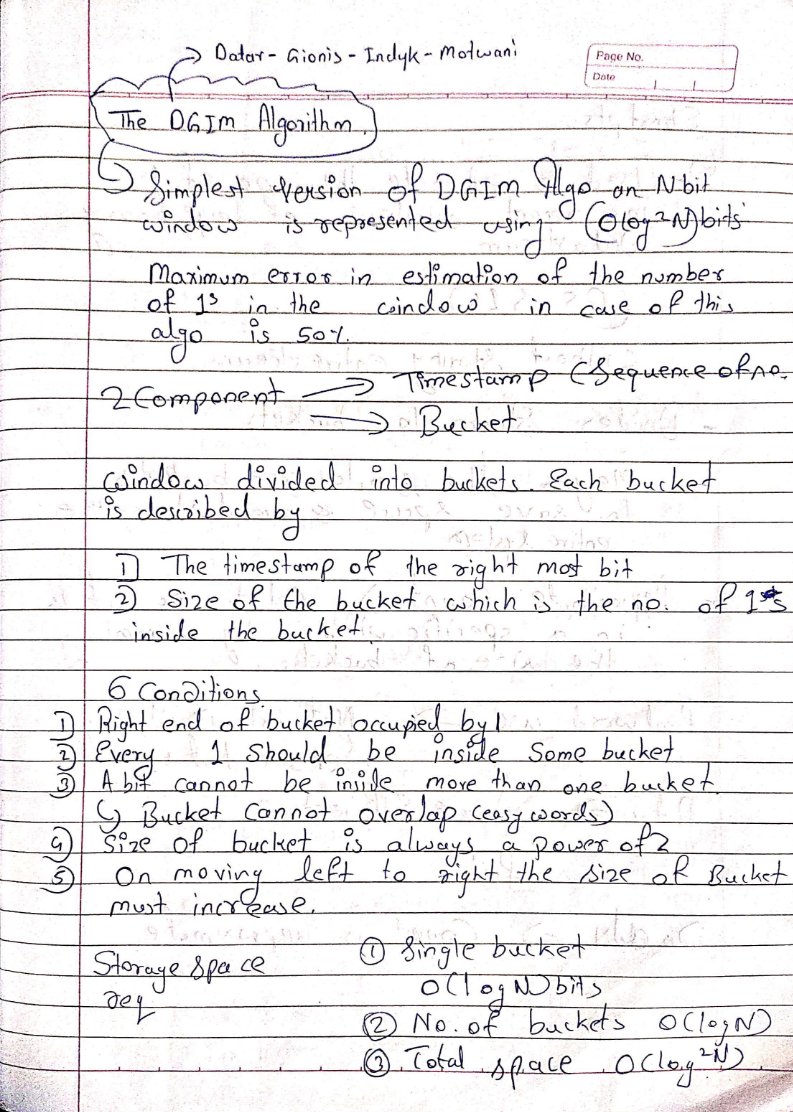 Datar - Gionis - Indyk - Motwani
Page No.
Date
The DGIM Algorithm.
Simplest version of DGIM Algo on N bit
window is represented using (O log²N) bits
Maximum error in estimation of the number
of 1s in the window in case of this
algo is 50%.
2 Component → Timestamp (Sequence of no.
→ Bucket
window divided into buckets. Each bucket
is described by
1) The timestamp of the right most bit
2) Size of the bucket which is the no. of 1s
inside the bucket.
6 Conditions
1) Right end of bucket occupied by 1
2) Every 1 should be inside Some bucket
3) A bit cannot be inside more than one bucket.
↳ Bucket cannot overlap (easy words)
4) Size of bucket is always a power of 2
5) On moving left to right the size of Bucket
must increase.
Storage space
req
① Single bucket
O(log N) bits
② No. of buckets O(log N)
③ Total space O(log²N)